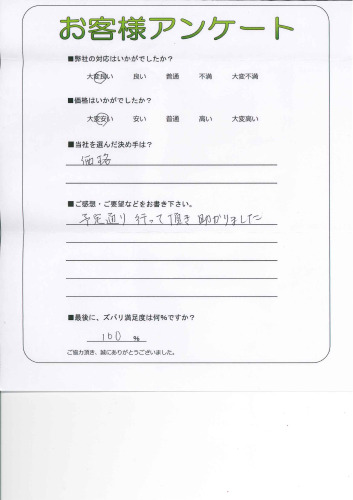 お客様アンケート
■弊社の対応はいかがでしたか?
大変良い 良い 普通 不満 大変不満
■価格はいかがでしたか?
大変安い 安い 普通 高い 大変高い
■当社を選んだ決め手は?
価格
■ご感想・ご要望などをお書き下さい。
予定通り行って頂き助かりました
■最後に、ズバリ満足度は何%ですか?
100 %
ご協力頂き、誠にありがとうございました。